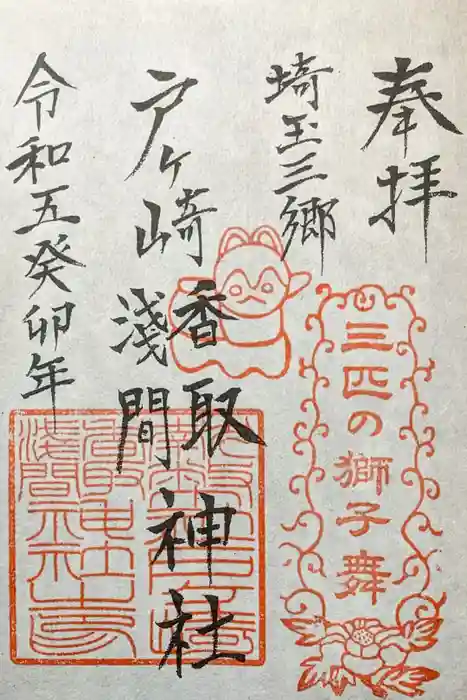 奉拝
埼玉三郷
三匹の獅子舞
戸ヶ崎
香取
淺間
神社
令和五癸卯年